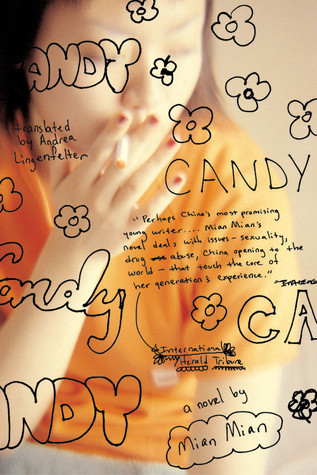 ANDY
translated
by Andrea
Lingenfelter
CANDY
"Perhaps China's most promising
young writer.... Mian Mian's
novel deals with issues - sexuality,
drug abuse, China opening to the
world - that touch the core of
her generation's experience."
International
Herald Tribune
Candy
CA
NDY
a novel by
Mian Mian